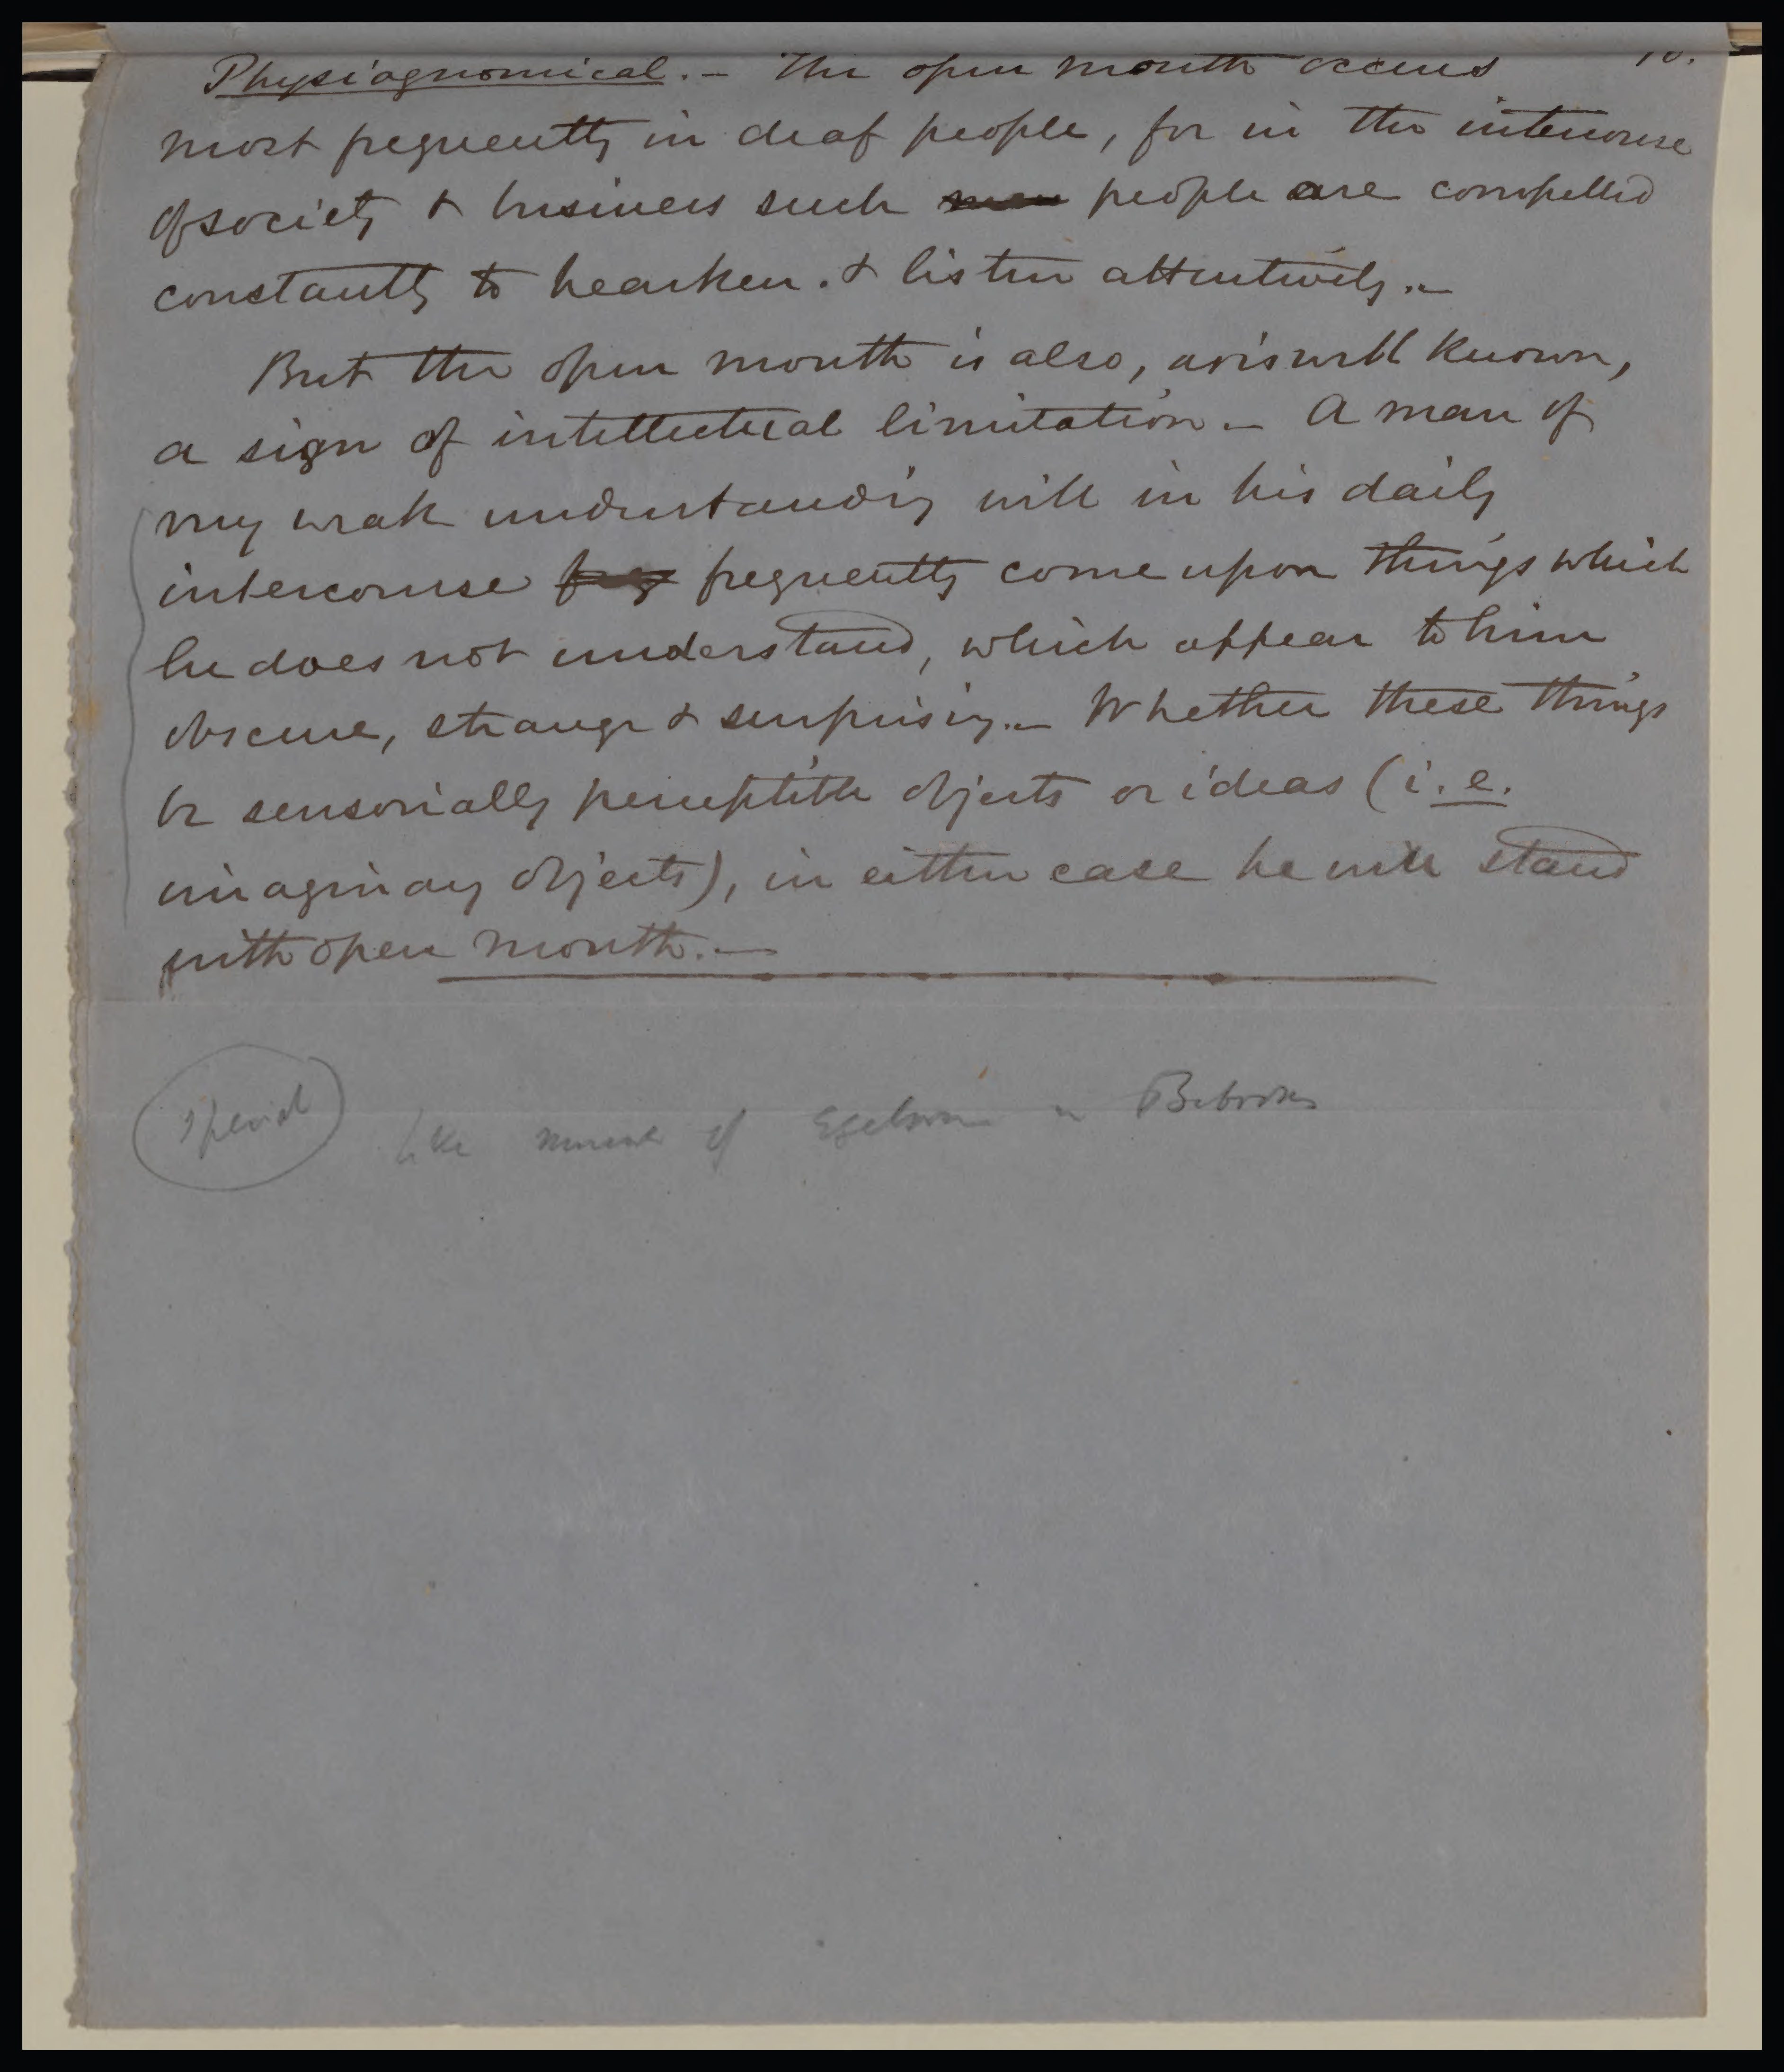 Physiognomical. – The open mouth occurs 10.
most frequently in deaf people, for in the intercourse
of society & business such men people are compelled
constantly to hearken. & listen attentively. –
But the open mouth is also, as is well known,
a sign of intellectual limitation. – A man of
very weak understanding will in his daily
intercourse freq frequently come upon things which
he does not understand, which appear to him
obscure, strange & surprising. – Whether these things
be sensorially perceptible objects or ideas (i.e.
imaginary objects), in either case he will stand
with open mouth. –
like of